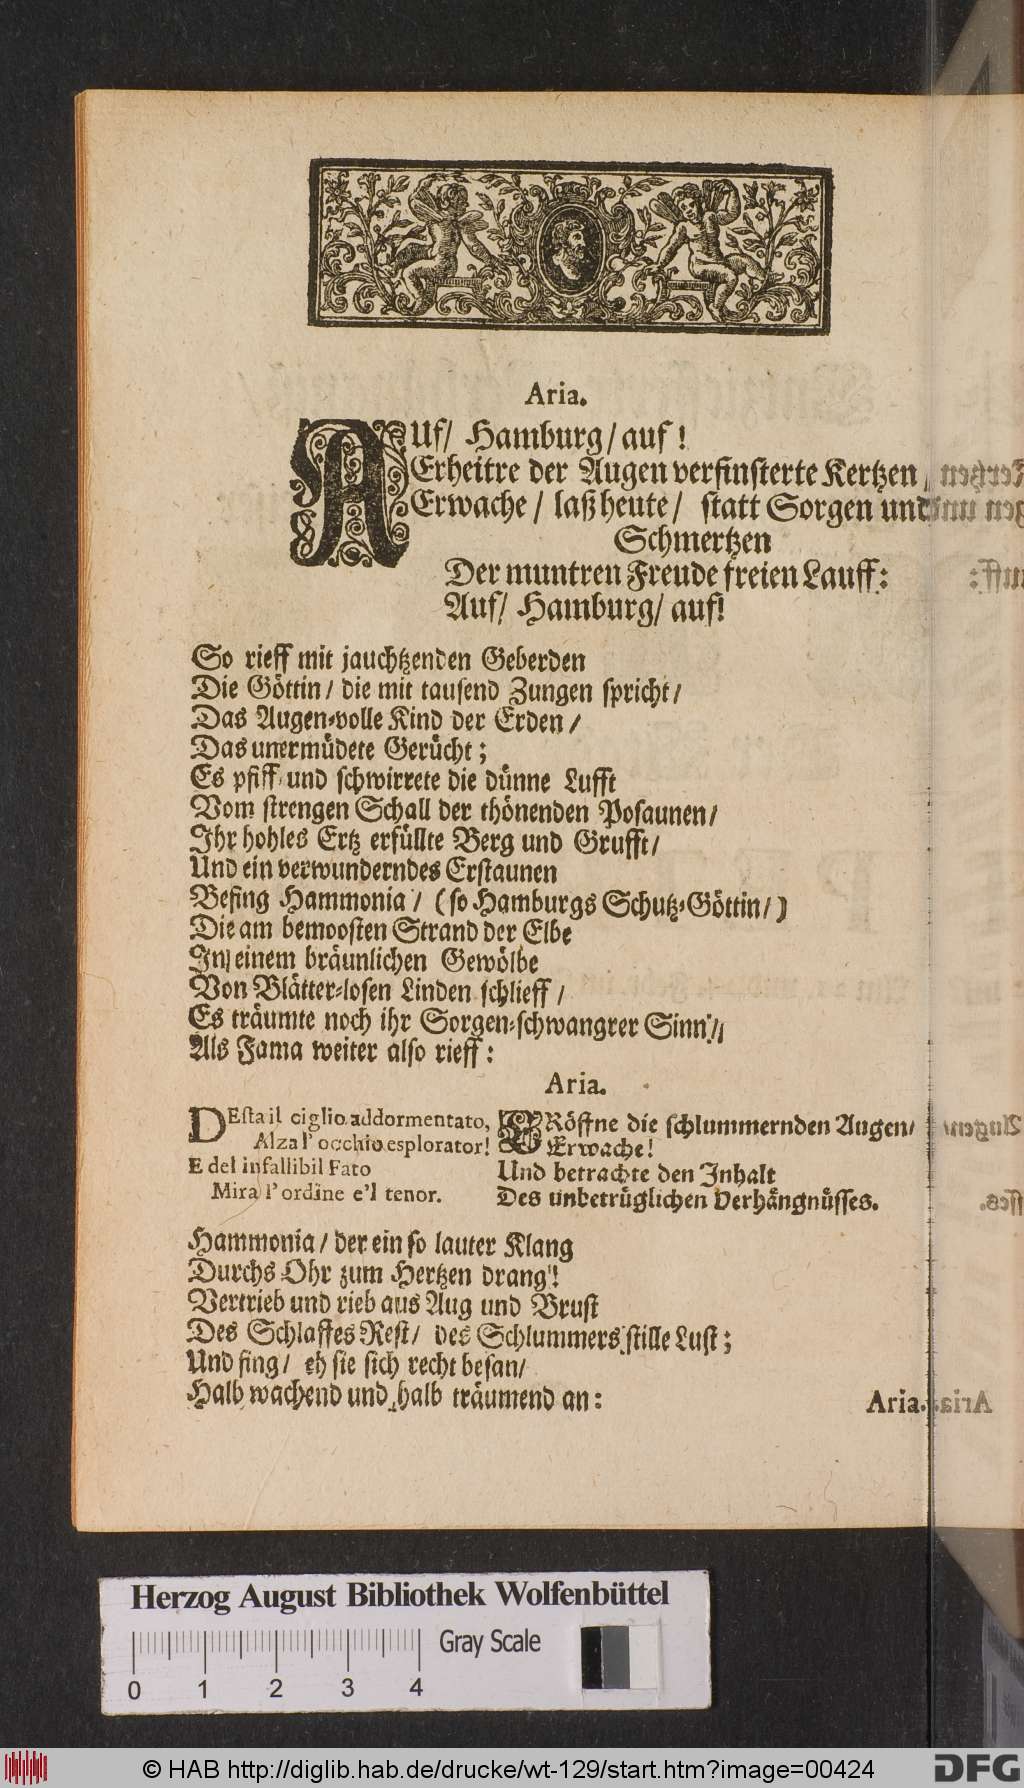 Aria.
AUf/ Hamburg/ auf!
Erheitre der Augen verfinsterte Kertzen/
Erwache/ laß heute/ statt Sorgen und
Schmertzen
Der muntren Freude freien Lauff:
Auf/ Hamburg/ auf!
So rieff mit jauchtzenden Geberden
Die Göttin/ die mit tausend Zungen spricht/
Das Augen-volle Kind der Erden/
Das unermüdete Gerücht;
Es pfiff und schwirrete die dünne Lufft
Vom strengen Schall der thönenden Posaunen/
Ihr hohles Ertz erfüllte Berg und Grufft/
Und ein verwunderndes Erstaunen
Befing Hammonia/ (so Hamburgs Schutz-Göttin/)
Die am bemoosten Strand der Elbe
In einem bräunlichen Gewölbe
Von Blätter-losen Linden schlieff/
Es träumte noch ihr Sorgen-schwangrer Sinn/
Als Fama weiter also rieff:
Aria.
DEsta il ciglio addormentato,
Alza l'occhio esplorator!
E del infallibil Fato
Mira l'ordine e'l tenor.
ERöffne die schlummernden Augen/
Erwache!
Und betrachte den Inhalt
Des unbetrüglichen Verhängnüsses.
Hammonia/ der ein so lauter Klang
Durchs Ohr zum Hertzen drang!
Vertrieb und rieb aus Aug und Brust
Des Schlaffes Rest/ des Schlummers stille Lust;
Und fing/ eh sie sich recht besan/
Halb wachend und halb träumend an:
Aria.
Herzog August Bibliothek Wolfenbüttel
Gray Scale
0 1 2 3 4
© HAB http://diglib.hab.de/drucke/wt-129/start.htm?image=00424
DFG